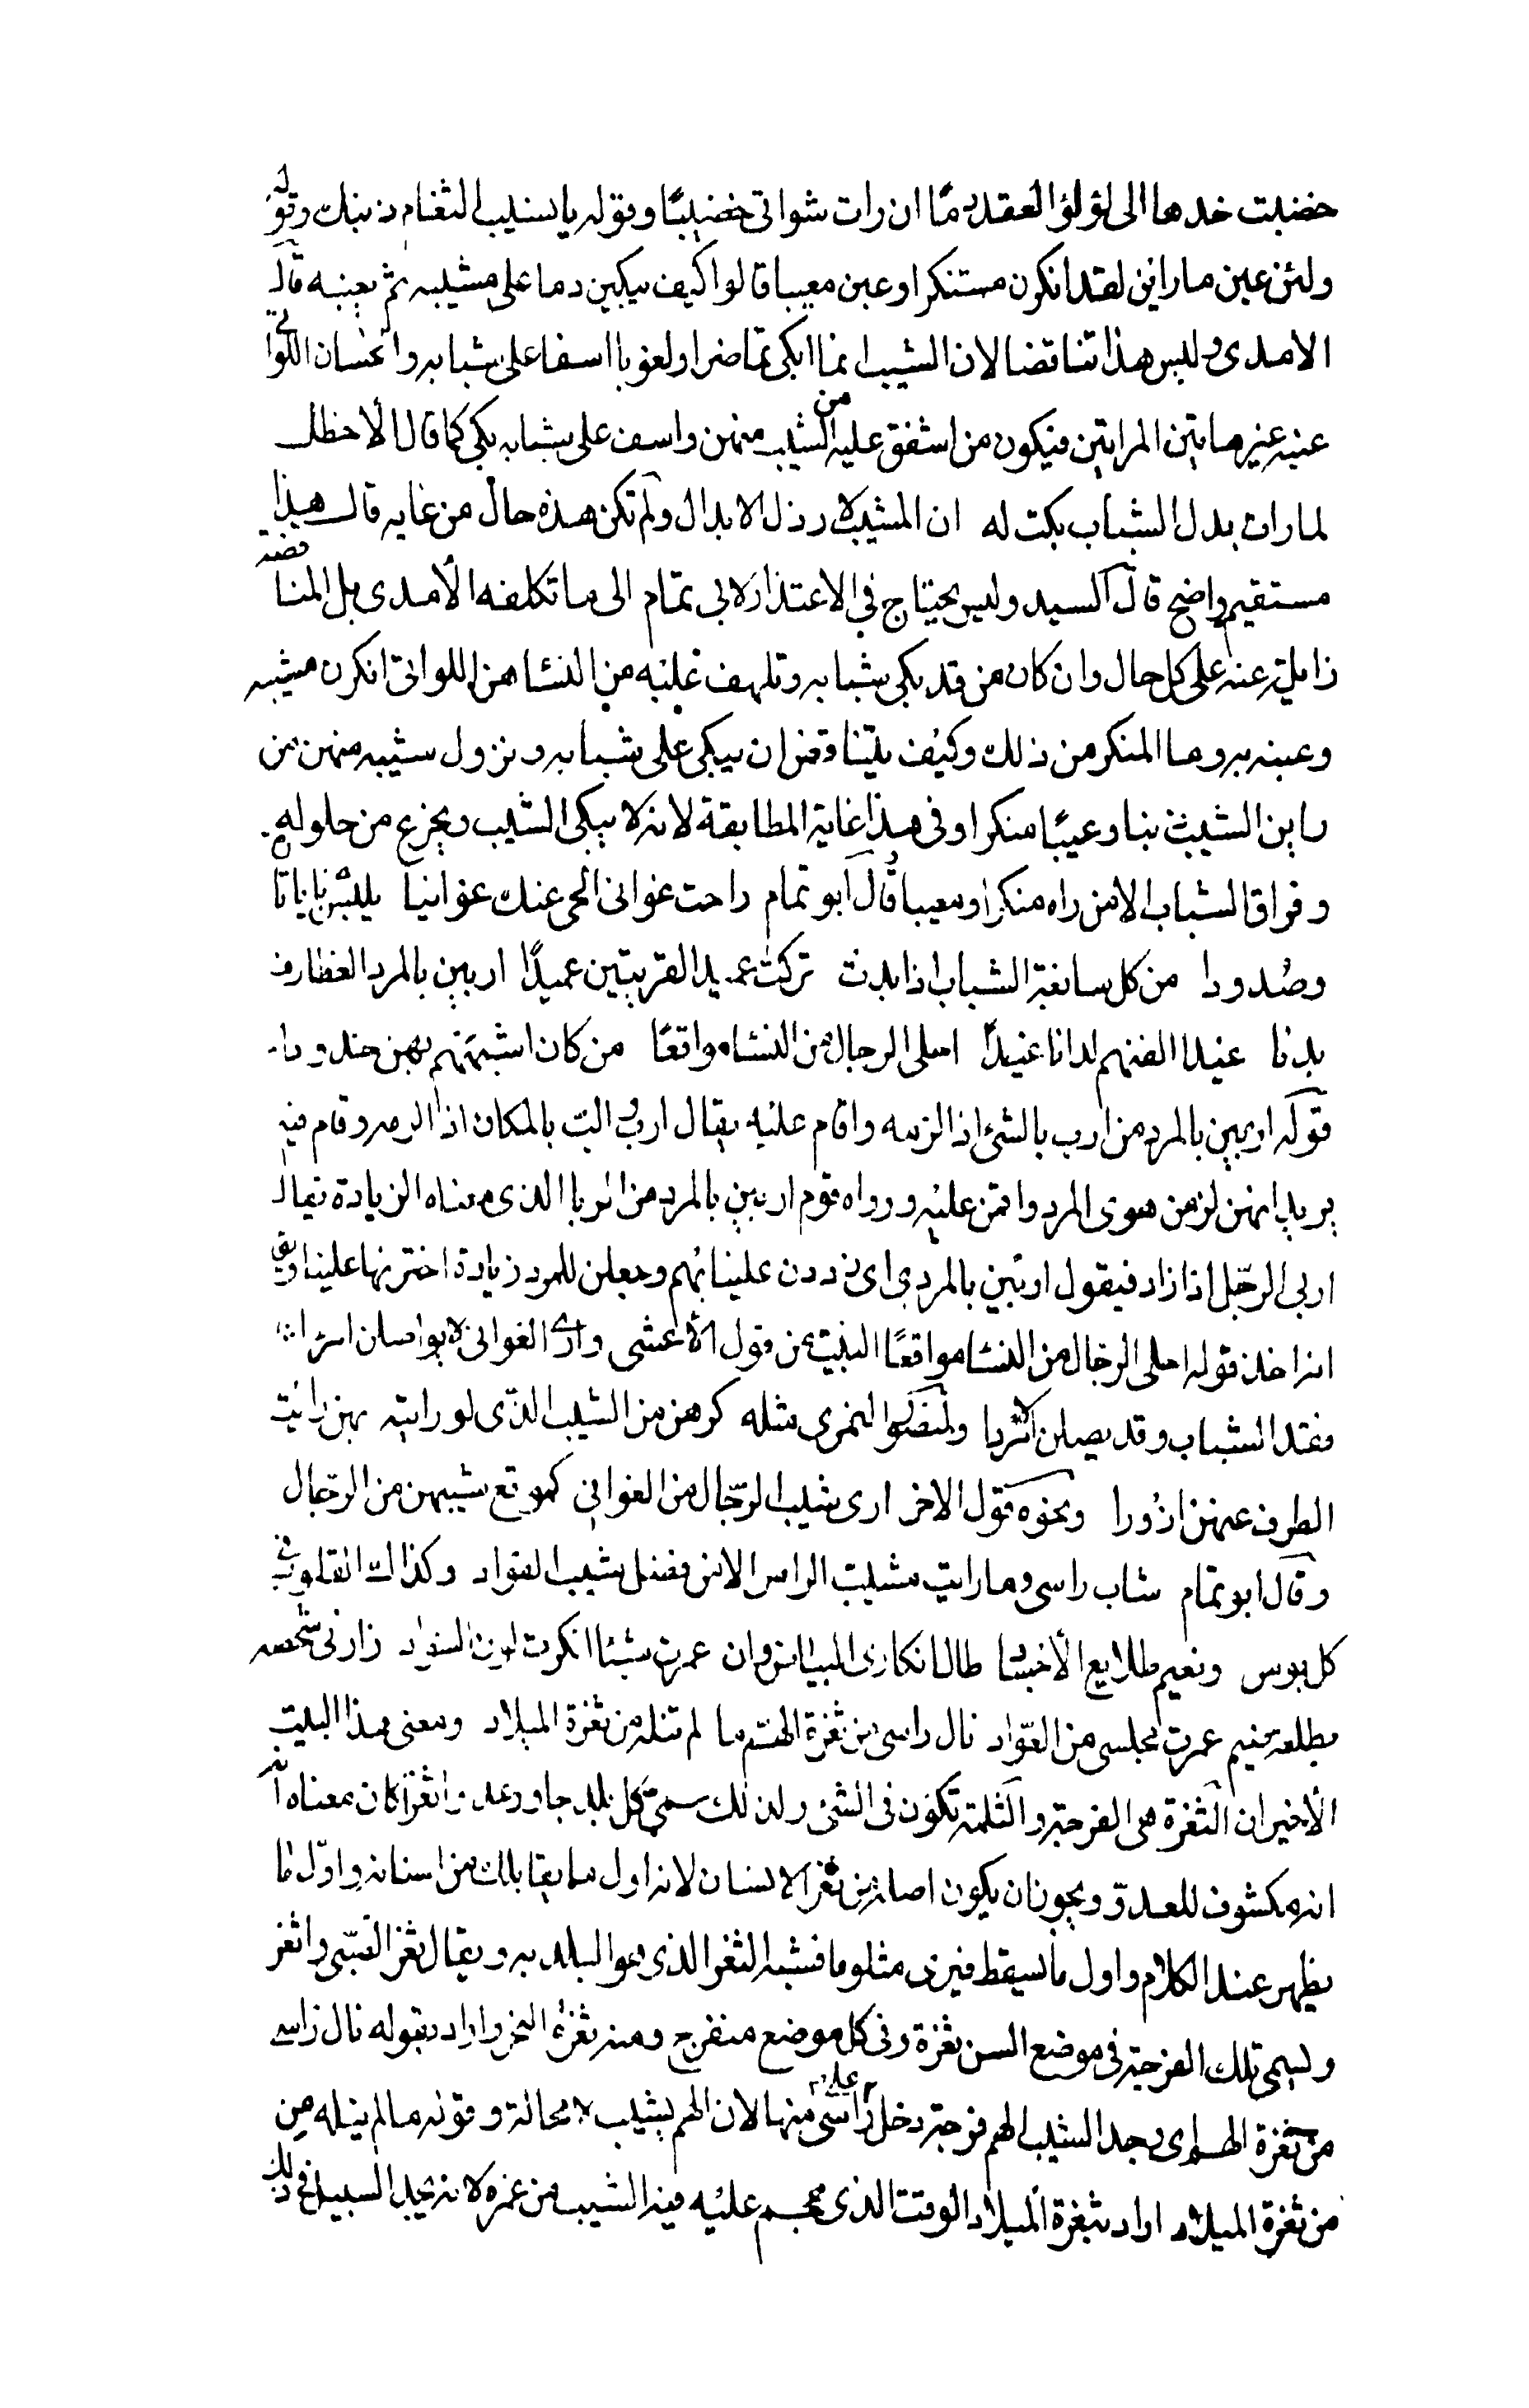 خضبت خدها الى لؤلؤ العقد دما ان رات شواتى خضيبا وقوله يا نسيب الثغام ذنبك وقوله
ولئن عبن ما راين لقد انكرن مستنكرا وعبن معيبا قالوا كيف يبكين دما على مشيبه ثم يعبنه قال
الامدى وليس هذا تناقضا لان الشيب انما ابكى تماضرا ولعوبا اسفا على شبابه والحسان اللواتى
عبنه غير هاتين المراتين فيكون من اشفق عليه من الشيب منهن واسف على شبابه بكى كما قال الأخطل
لما رات بدل الشباب بكت له ان المشيب لارذل الابدال ولم تكن هذه حال من عابه قال هذا
مستقيم واضح قال السيد وليس يحتاج فى الاعتذار لابى تمام الى ما تكلفه الأمدى بل المناقضة
زايلة عنه على كل حال وان كان من قد بكى شبابه وتلهف عليه من النسا هن اللواتى انكرن مشيبه
وعبنه به وما المنكر من ذلك وكيف يتناقض ان يبكى على شبابه ونزول شيبه منهن من
راين الشيب ذنبا وعيبا منكرا وفى هذا غاية المطابقة لانه لا يبكى الشيب ويجزع من حلوله
وفراق الشباب الا من راه منكرا ومعيبا قال ابو تمام راحت غوانى الحى عنك غوانيا يلبسن نايا تارة
وصدودا من كل سابغة الشباب اذا بدت تركت عميد القريتين عميدا اربين بالمرد الغطارف
بدنا غيدا الفنهم لدانا غيدا احلى الرجال من النساء مواقعا من كان اشبههم بهن خدودا
قوله اربين بالمرد من ارب بالشئ اذا لزمه واقام عليه يقال ارب والب بالمكان اذا لزمه وقام فيه
يريد انهن لزمن هوى المرد واقمن عليه ورواه قوم اربين بالمرد من الربا الذى معناه الزيادة يقال
اربى الرجل اذا زاد فيقول اربين بالمرد اى زدن علينا بهم وجعلن للمرد زيادة اخترنها علينا ويق
انه اخذ قوله احلى الرجال من النسا مواقعا البيت من قول الأعشى وارى الغوانى لا يواصلن امرا
فقد الشباب وقد يصلن الامردا ولمنصور النمرى مثله كرهن من الشيب الذى لو راينه بهن رايت
الطرف عنهن ازورا ونحوه قول الاخر ارى شيب الرجال من الغوانى كموقع شيبهن من الرجال
وقال ابو تمام شاب راسى وما رايت مشيب الراس الا من فضل شيب الفواد وكذاك القلوب فى
كل بوس ونعيم طلايع الأجساد طال انكارى البياض وان عمرت شيئا انكرت لون السواد زارنى شخصه
بطلعة ضيم عمرت مجلسى من العواد نال راسى من ثغرة الهم ما لم تنله من ثغرة الميلاد ومعنى هذا البيت
الأخير ان الثغرة هى الفرجة والثلمة تكون فى الشئ ولذلك سمى كل بلد جاور عدوا ثغرا كان معناه
انه مكشوف للعدو ويجوز ان يكون اصله من ثغر الانسان لانه اول ما يقابلك من اسنانه واول ما
يظهر عند الكلام واول ما يسقط فيرى مثلوما فشبه الثغر الذى هو البلد به ويقال ثغر الصبى واثغر
ويسمى تلك الفرجة فى موضع السن ثغرة وفى كل موضع منفرج ومنه ثغرة النحر واراد بقوله نال راسى
من ثغرة الهم اى وجد الشيب الهم فرجة دخل على راسى منها لان الهم يشيب لا محالة وقوله ما لم ينله من
من ثغرة الميلاد اراد بثغرة الميلاد الوقت الذى يهجم عليه فيه الشيب من عمره لانه يجد السبيل فى ذلك